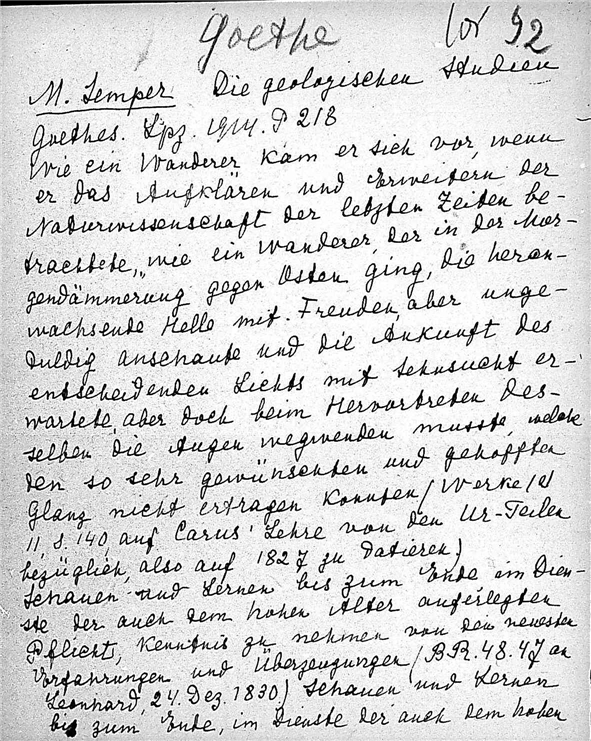 Goethe vor 92
M. Semper Die geologischen Studien
Goethes. Lpz. 1914. P 218
Wie ein Wanderer kam er sich vor, wenn
er das Aufklären und Erweitern der
Naturwissenschaft der letzten Zeiten be-
trachtete, „wie ein Wanderer, der in der Mor-
gendämmerung gegen Osten ging, die heran-
wachsende Helle mit Freuden, aber unge-
duldig anschaute und die Ankunft des
entscheidenden Lichts mit Sehnsucht er-
wartete, aber doch beim Hervortreten des-
selben die Augen wegwenden musste, welche
den so sehr gewünschten und gehofften
Glanz nicht ertragen konnten (Werke
11, S. 140, auf Carus' Lehre von den Ur-Teilen
bezüglich, also auf 1827 zu datieren)
Schauen und Lernen bis zum Ende im Dien-
ste der auch dem hohen Alter auferlegten
Pflicht, Kenntnis zu nehmen von den neuesten
Erfahrungen und Überzeugungen (BR. 48. 47 an
Leonhard, 24. Dez. 1830) Schauen und Lernen
bis zum Ende, im Dienste der auch dem hohen